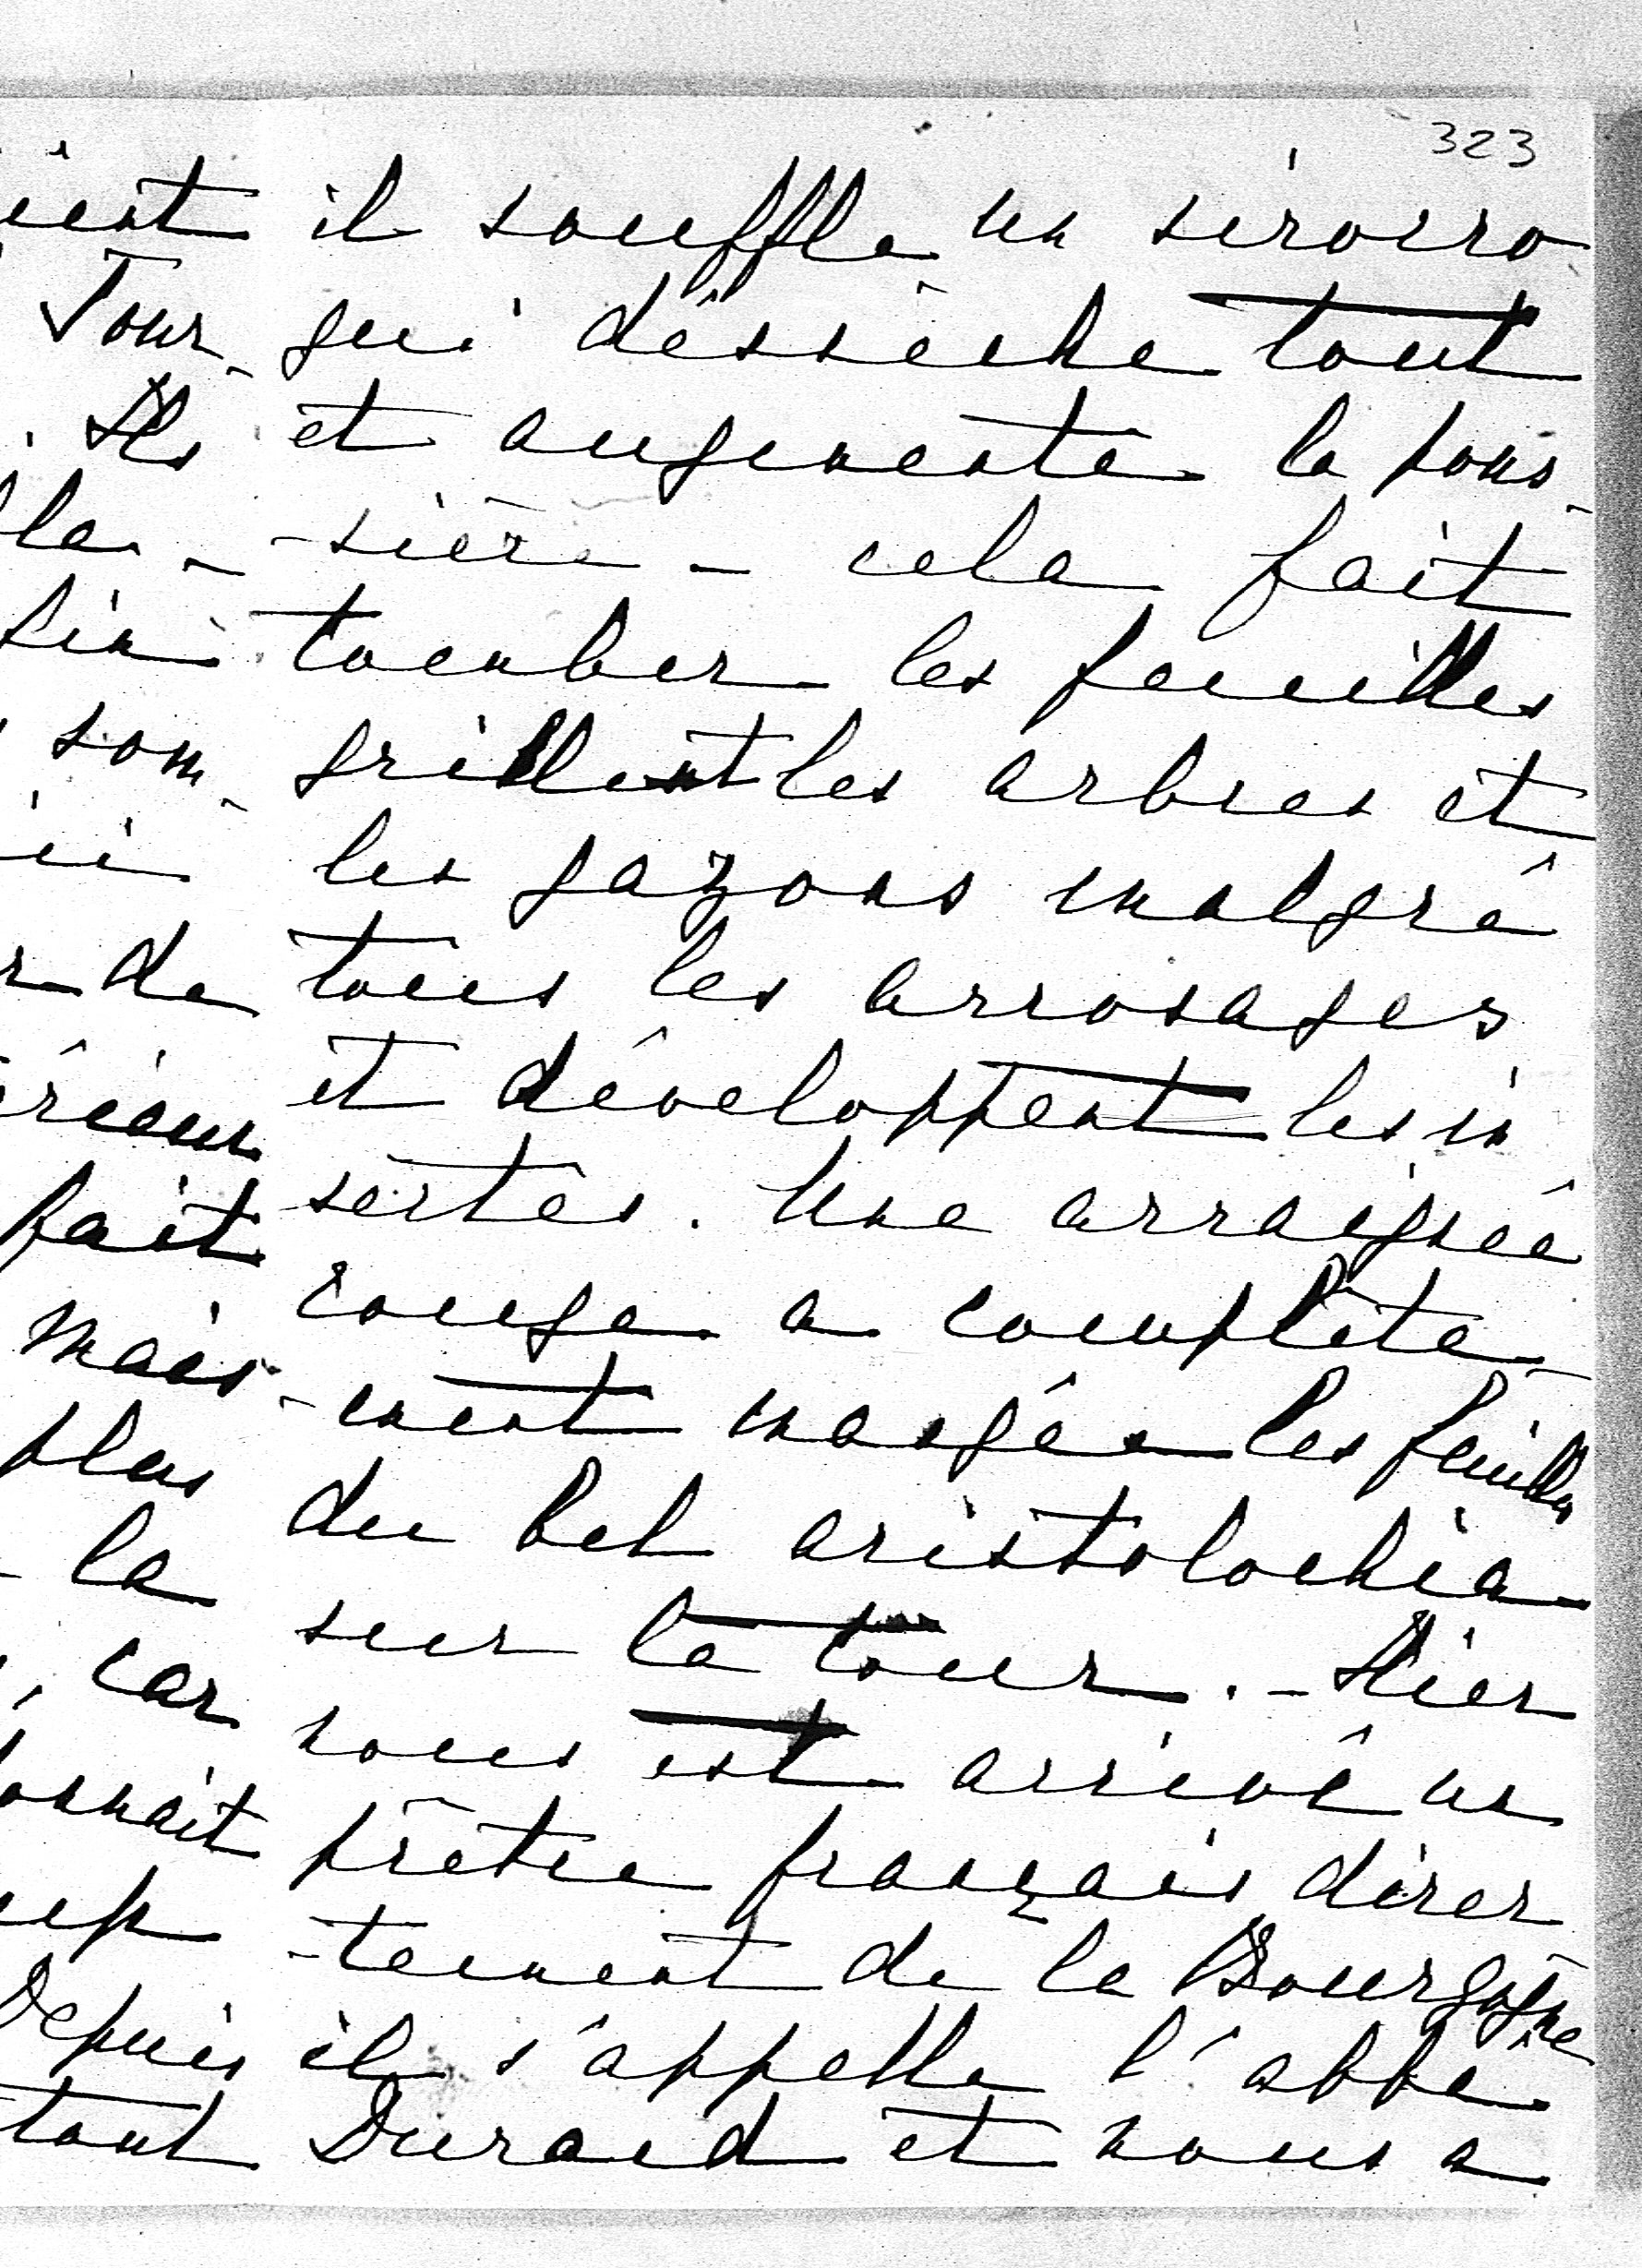 323
il souffle un sirocco
qui déssèche tout
et augmente la pous-
-sière - cela fait
tomber les feuilles
grillent les arbres et
les gazons malgré
tous les arrosages
et développent les in
sectes. Une arraignée
rouge a complète-
-ment mangée les feuilles
du bel aristolochia
sur la tour. - Hier
nous est arrivé un
prêtre français direc
-tement de la Bourgogne
il s'appelle l'abbé
Durand et nous a
Tour-
Ils
la -
som-
de
fait
mais
plus
la
, car
Depuis
tout